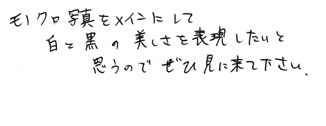 モノクロ写真をメインにして
白と黒の美しさを表現したいと
思うのでぜひ見に来て下さい.